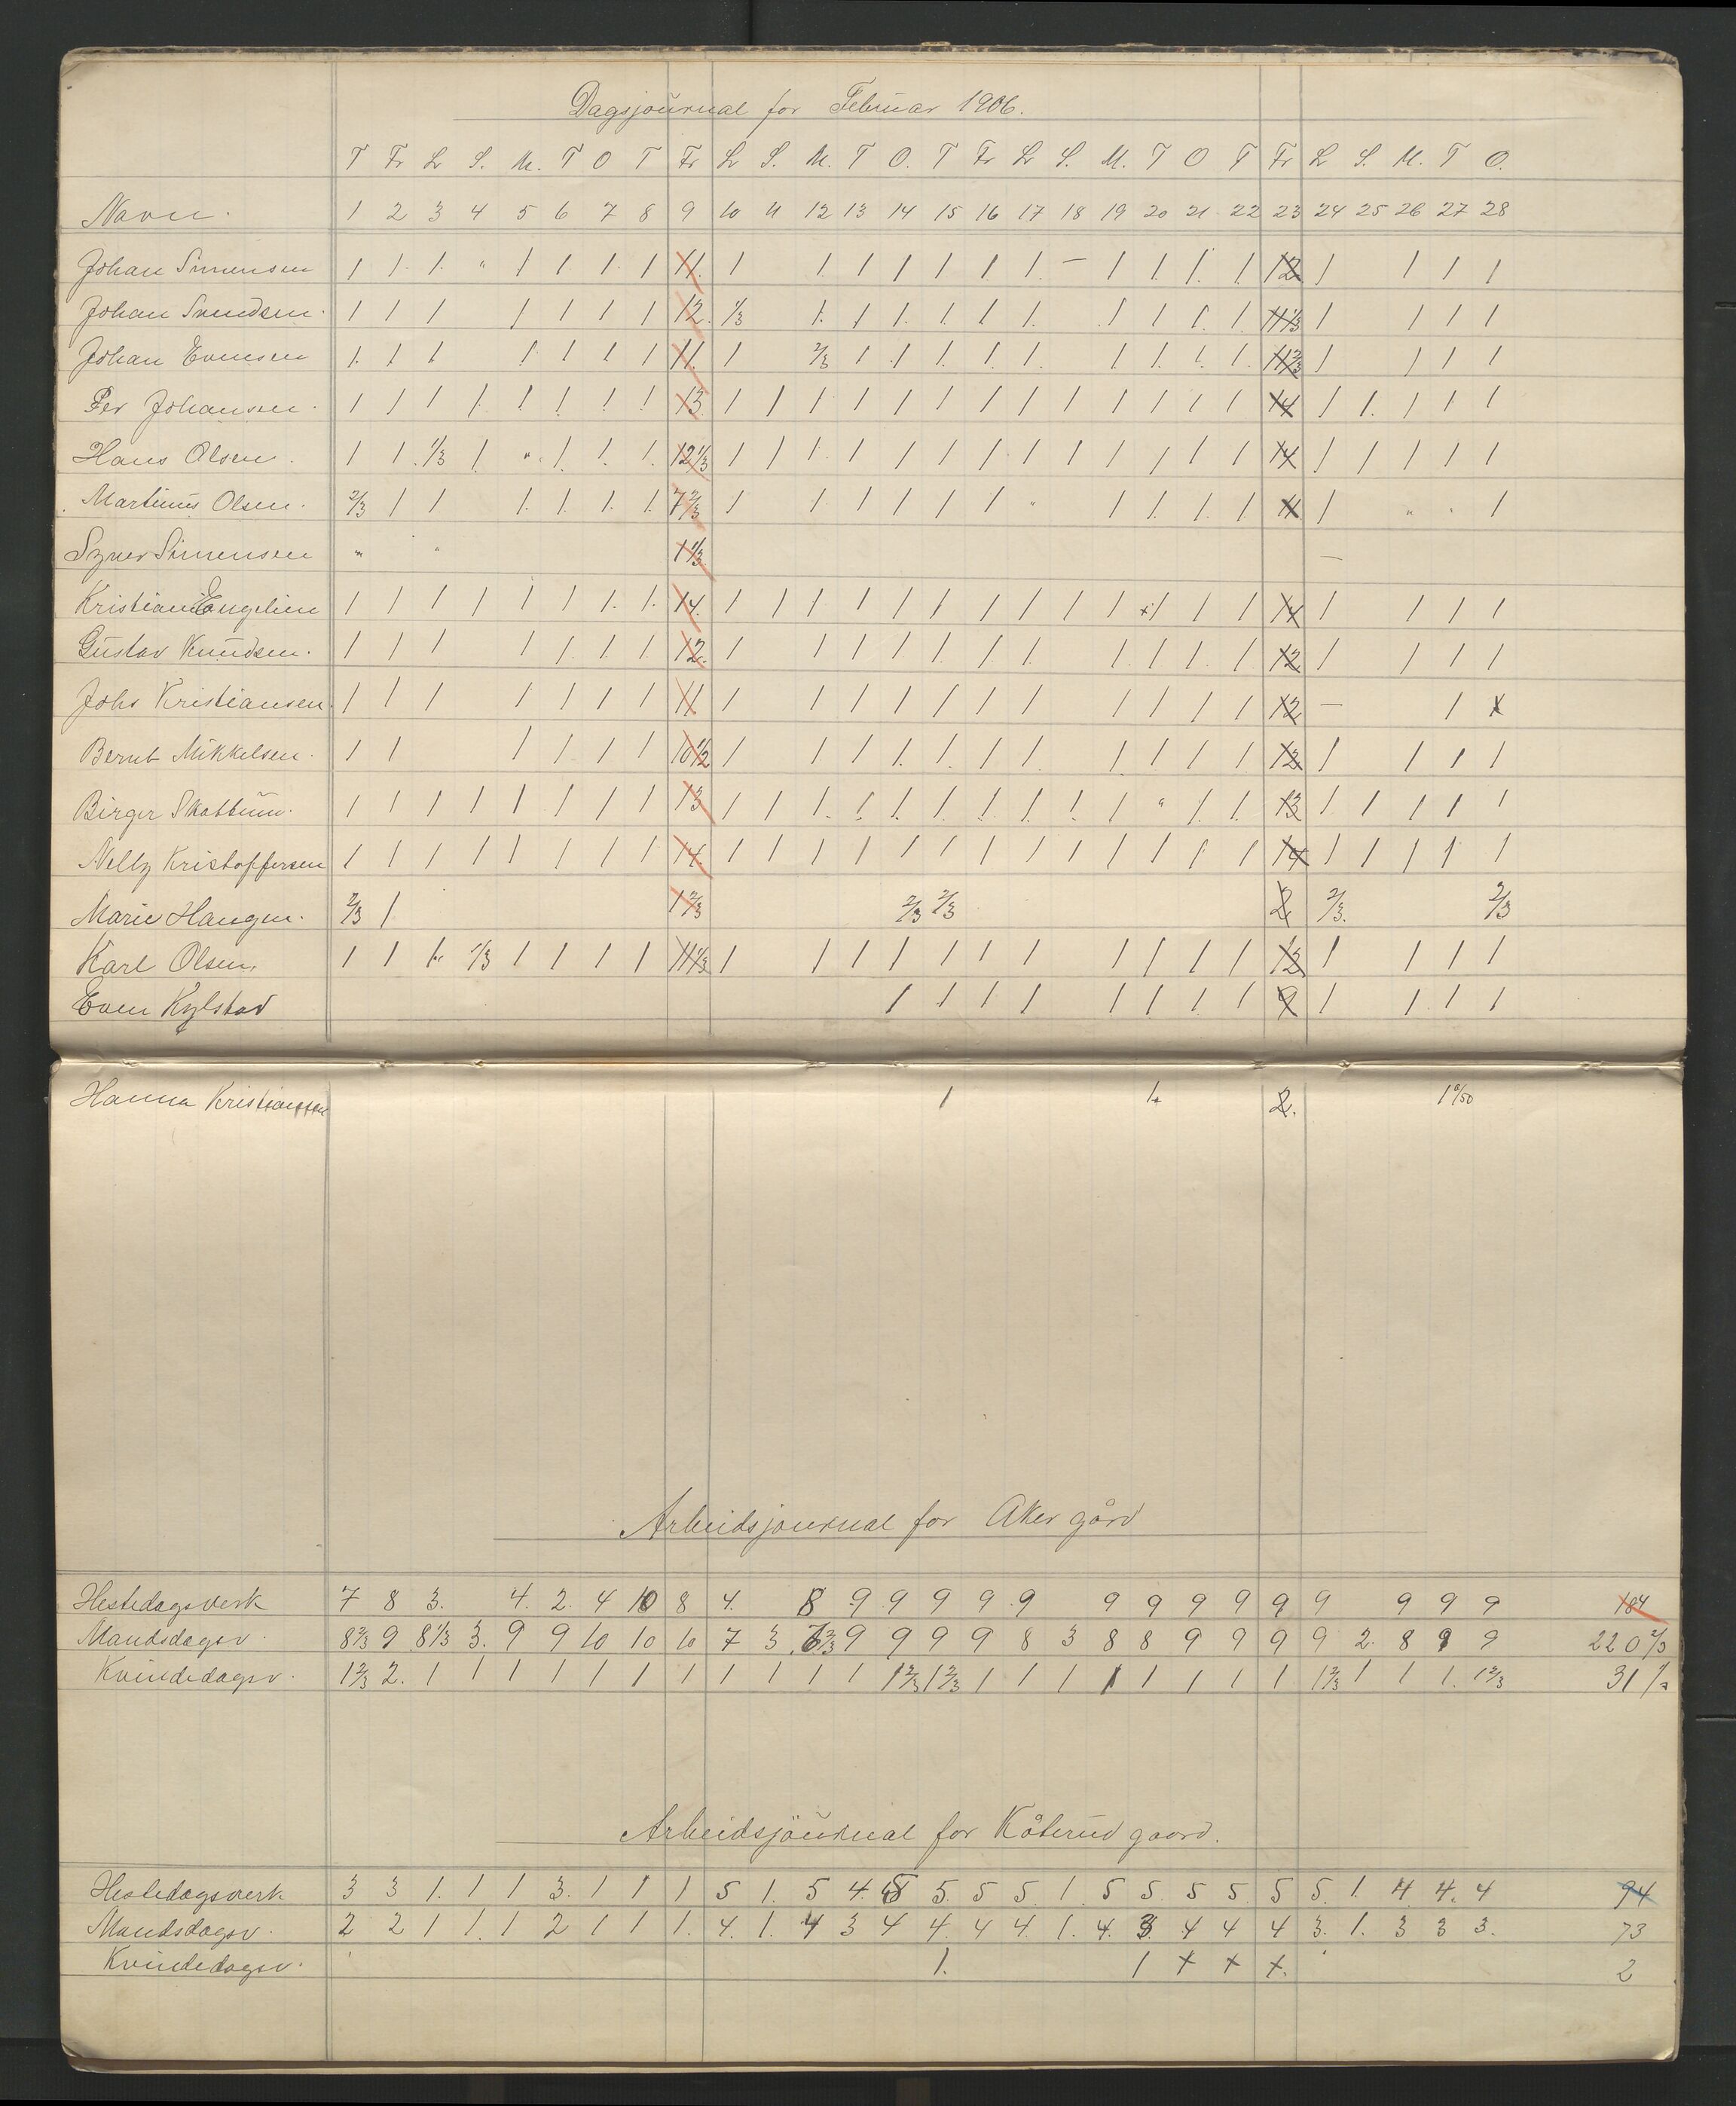 Dagsjournal for Februar 1906.
T Fr L S. M. T O T Fr L S. M. T O. T Fr L S. M. T O T Fr L S. M. T O.
Navn. 1 2 3 4 5 6 7 8 9 10 11 12 13 14 15 16 17 18 19 20 21 22 23 24 25 26 27 28
Johan Simensen 1 1. 1. " 1 1 1. 1 11. 1 1. 1 1 1 1 1. — 1 1 1. 1 12 1 1 1 1
Johan Svendsen. 1 1 1 1 1 1 1 12. 1/3 1. 1 1. 1. 1 1. 1 1 1 1. 11 1/3 1 1 1 1
Johan Evensen 1. 1 1 1. 1 1 1 11. 1 2/3 1 1 1. 1. 1. 1 1. 1. 1. 11 2/3 1 1 1 1
Per Johansen. 1 1 1 1. 1. 1. 1. 1. 13. 1 1 1 1 1 1 1 1 1 1 1 1 1 14 1 1. 1 1 1
Hans Olsen. 1 1. 1/3 1 " 1. 1. 1. 12 1/3 1 1 1. 1 1 1 1 1 1 1 1 1 1 14 1 1 1 1 1
Martinus Olsen. 2/3 1 1 1. 1. 1. 1. 7 2/3 1 1 1 1 1 1 " 1 1. 1. 1 11 1 " " 1
Syver Simensen " " 1 1/3 —
Kristian Engelien 1 1 1 1 1 1 1. 1. 14. 1 1 1 1 1 1 1 1 1 1 x1 1 1 14 1 1 1 1
Gustav Knudsen. 1 1 1 1 1. 1. 1 12. 1 1 1 1 1. 1. 1. 1. 1. 1. 1 12 1 1 1 1
Johs Kristiansen. 1 1 1 1 1 1 1 11 1 1 1 1 1 1 1 1 1 1 1 12 — 1 x
Bernt Mikkelsen. 1 1 1 1 1 1 10 1/2 1 1 1 1. 1. 1 1. 1. 1 1 1 13 1 1 1 1
Birger Skattum. 1 1 1 1 1 1 1 1 13 1 1 1. 1. 1. 1. 1. 1. 1. 1 " 1. 1. 13 1 1 1 1 1
Nelly Kristoffersen 1 1 1 1 1 1 1 1 14. 1 1 1 1 1 1 1 1 1 1 1 1 1 14 1 1 1 1 1
Marie Haugen. 2/3 1 1 2/3 2/3 2/3 2 2/3. 2/3
Karl Olsen. 1 1 1. 1/3 1 1 1 1 11 1/3 1 1 1 1 1 1 1 1 1 1 1 12 1 1 1 1
Even Kylstad 1 1 1 1 1 1 1 1 9 1 1 1 1
Hanna Kristiansen 1 1 2. 1
Arbeidsjournal for Aker gård
Hestedagsverk 7 8 3. 4. 2. 4 10 8 4. 8 9 9 9 9 9 9 9 9 9 9 9 9 9 9 184
Mandsdagsv. 8 2/3 9 8 1/3 3. 9 9 10 10 10 7 3 6 2/3 9 9 9 9 8 3 8 8 9 9 9 9 2. 8 9 9 220 2/3
Kvindedagsv. 1 2/3 2. 1 1 1 1 1 1 1 1 1 1 1 1 2/3 1 2/3 1 1 1 1 1 1 1 1 1 2/3 1 1 1. 1 2/3 31
Arbeidsjournal for Kåterud gaard.
Hestedagsverk 3 3 1. 1 1 3. 1 1 1 5 1. 5 4. 5 5. 5 5 1. 5 5. 5 5. 5 5. 1. 4 4. 4 94
Mandsdagsv. 2 2 1 1. 1 2 1 1 1. 4. 1. 4 3 4 4. 4 4. 1. 4. 3. 4 4 4 3. 1. 3 3 3. 73
Kvindedagsv. 1. 1 x x x. 2